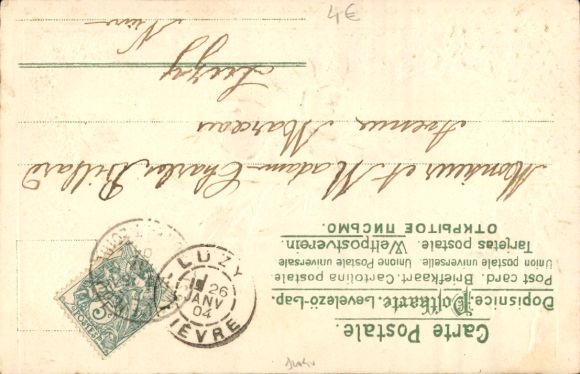 Carte Postale.
Dopisnice. Postkarte. Levelező-Lap.
Post card. Briefkaart. Cartolina postale
Union postale universelle. Unione Postale universale
Tarjetas postale. Weltpostverein.
ОТКРЫТОЕ ПИСЬМО.
Monsieur et Madame Charles Billard
Avenue Marceau
Luzy
Nièvre
LUZY
26
JANV
04
NIÈVRE
POSTES
4€